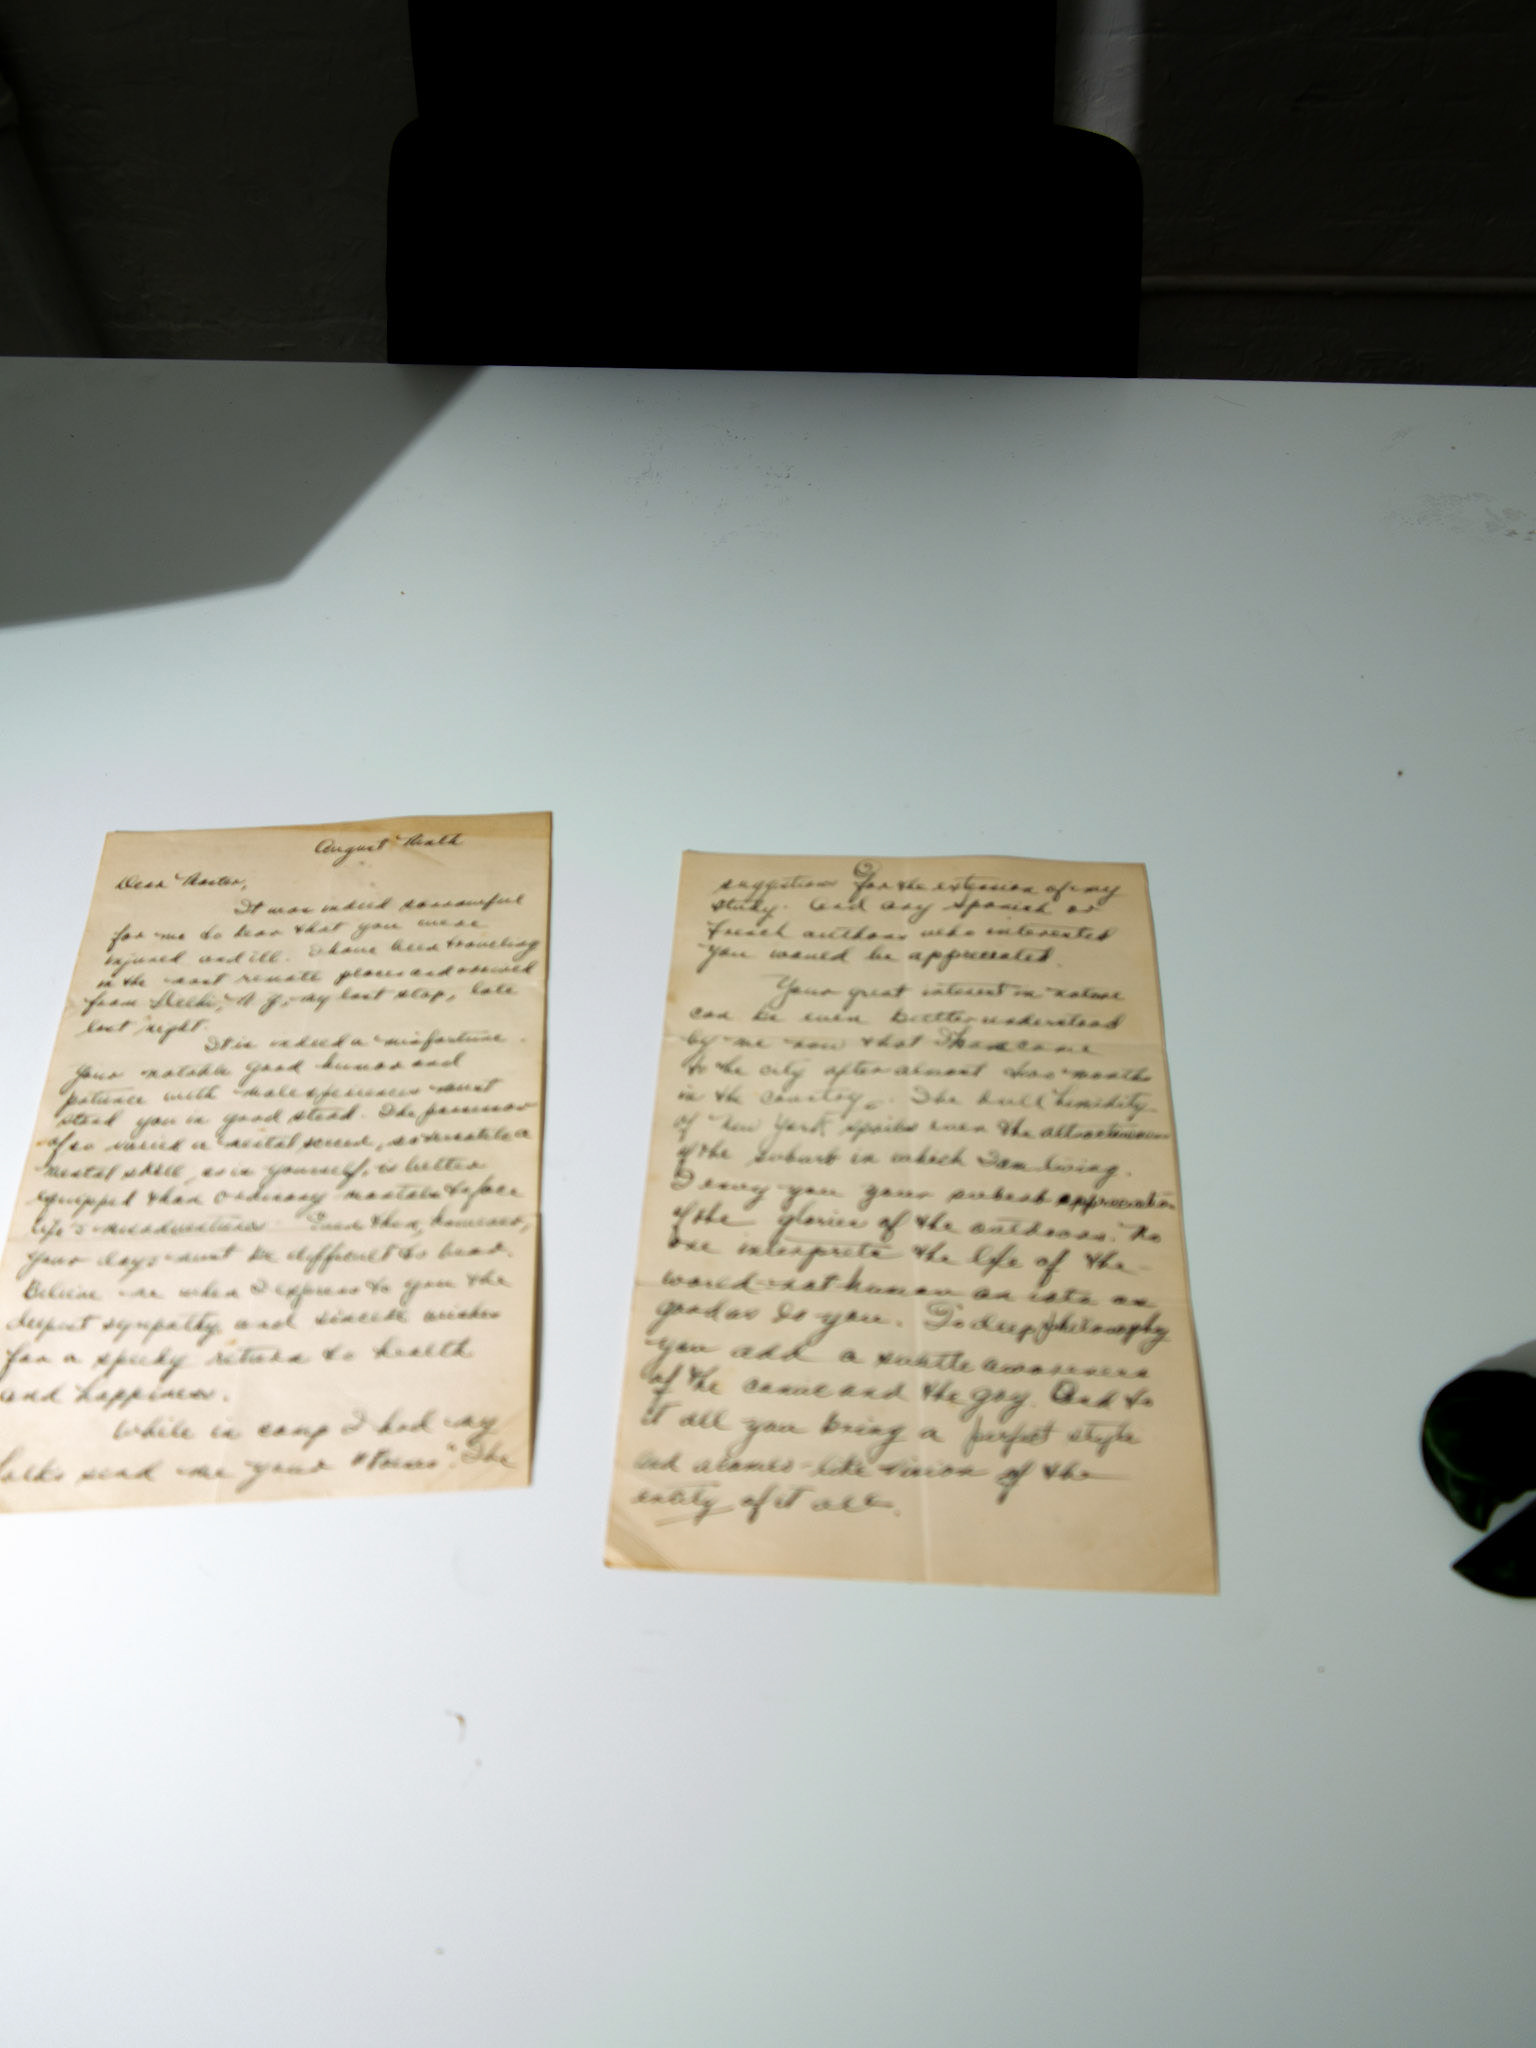 August Ninth
Dear Master,
It was indeed sorrowful
for me to hear that you were
injured and ill. I have been traveling
in the most remote places and arrived
from Delhi, N.Y., my last stop, late
last night.
It is indeed a misfortune.
Your notable good humor and
patience with must
stead you in good stead. The possessor
of so varied a mental , so versatile a
mental skill, as in yourself, is better
equipped than ordinary mortals to face
life's misadventures. Even then, however,
your days must be difficult to bear.
Believe me when I express to you the
deepest sympathy and sincere wishes
for a speedy return to health
and happiness.
While in camp I had my
folks send me your "Poems". The
2
suggestions for the extension of my
study. And any Spanish or
French authors who interested
you would be appreciated.
Your great interest in nature
can be even better understood
by me now that I have come
to the city after almost two months
in the country. The dull humidity
of New York spoils even the attractiveness
of the suburb in which I am living.
I envy you your appreciation
of the glories of the outdoors. No
one interprets the life of the
world-not human an iota as
good as do you. To deep philosophy
you add a subtle awareness
of the comic and the gay. And to
it all you bring a perfect style
and a like vision of the
entity of it all.